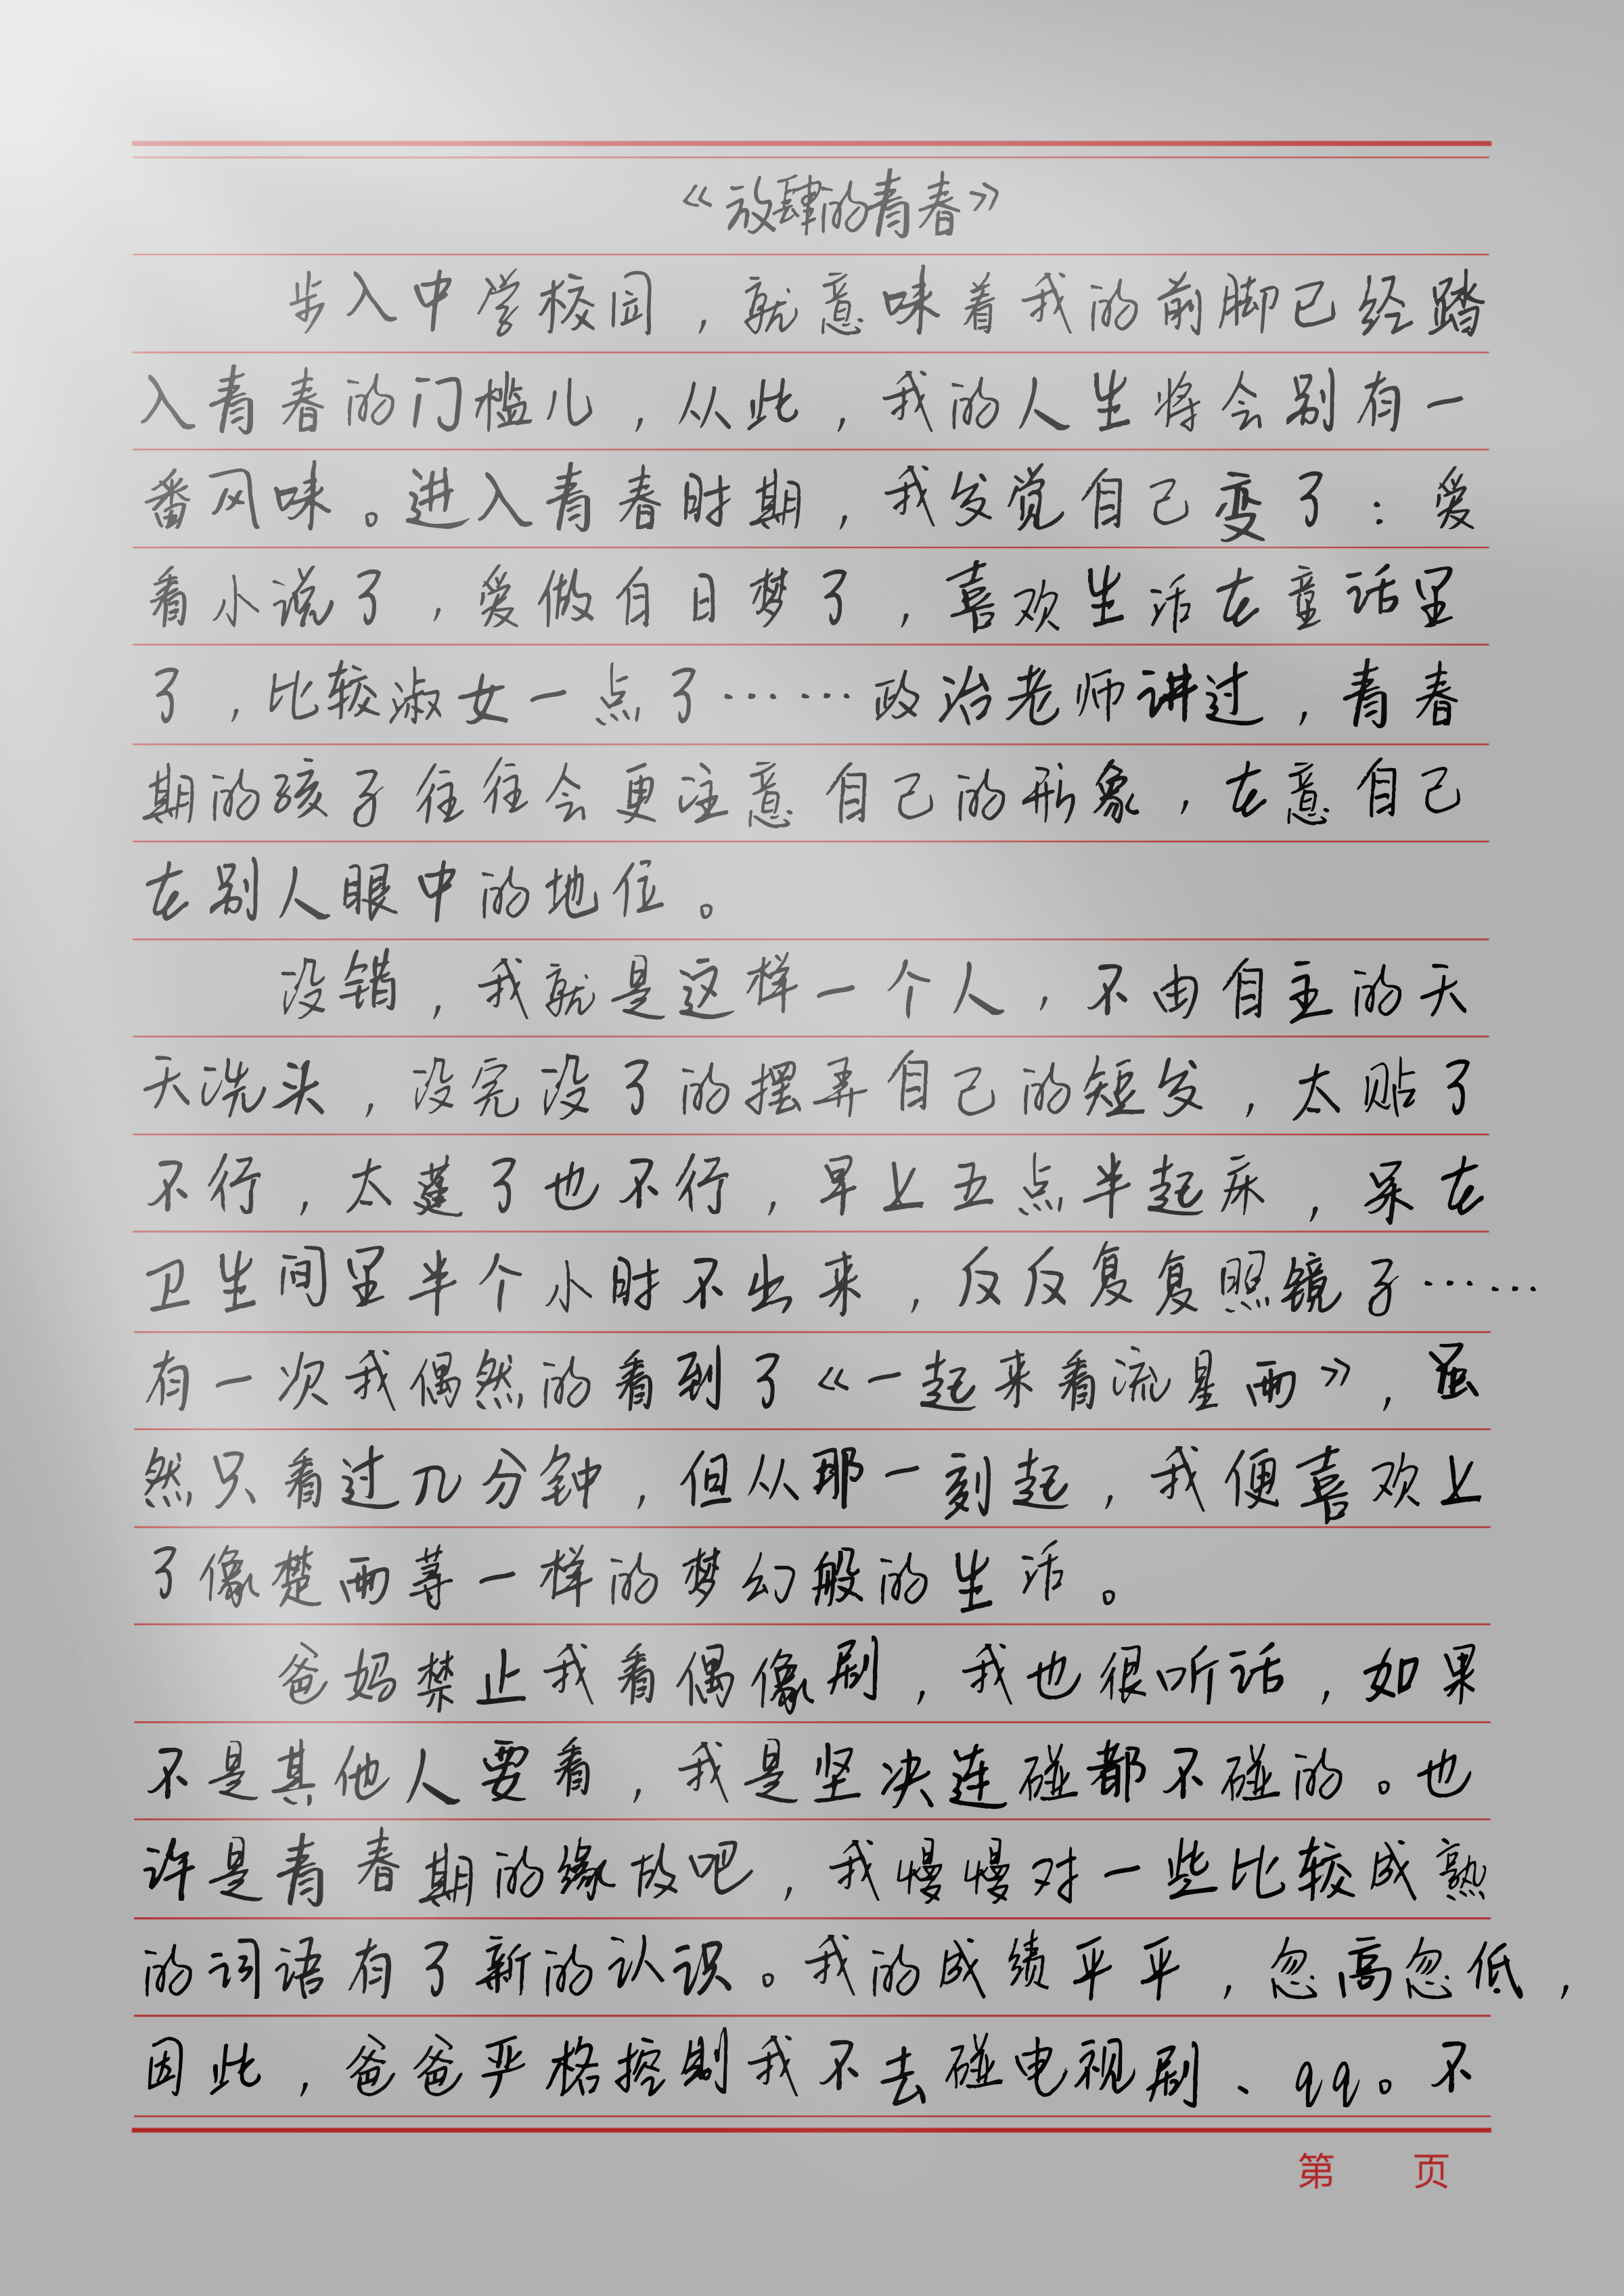 《放肆的青春》
步入中学校园，就意味着我的前脚已经踏
入青春的门槛儿，从此，我的人生将会别有一
番风味。进入青春时期，我发觉自己变了：爱
看小说了，爱做白日梦了，喜欢生活在童话里
了，比较淑女一点了……政治老师讲过，青春
期的孩子往往会更注意自己的形象，在意自己
在别人眼中的地位。
没错，我就是这样一个人，不由自主的天
天洗头，没完没了的摆弄自己的短发，太贴了
不行，太蓬了也不行，早上五点半起床，呆在
卫生间里半个小时不出来，反反复复照镜子……
有一次我偶然的看到了《一起来看流星雨》，虽
然只看过几分钟，但从那一刻起，我便喜欢上
了像楚雨荨一样的梦幻般的生活。
爸妈禁止我看偶像剧，我也很听话，如果
不是其他人要看，我是坚决连碰都不碰的。也
许是青春期的缘故吧，我慢慢对一些比较成熟
的词语有了新的认识。我的成绩平平，忽高忽低，
因此，爸爸严格控制我不去碰电视剧、qq。不
第 页